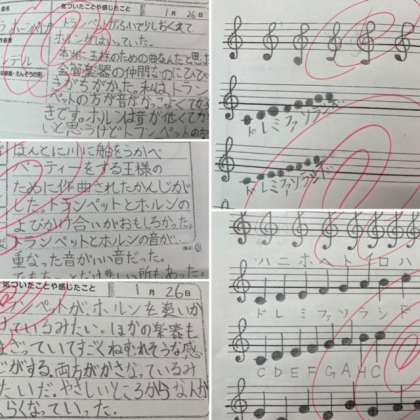 気づいたことや感じたこと 1月26日
トランペットがふいて少しおくれて
ホルンがはいっていた。
本当に王様のための曲なんだと思った
金管楽器の仲間なのにひび
きがちがかった。私はトラン
ペットの方が音がかっこよくて
きです。ホルンは音が低くてか
いと思うけどトランペットの
ほんとに川に船をうかべ
パーティーをする王様の
ために作曲されたかんじが
した。トランペットとホルンの
よびかけ合いがおもしろかった。
トランペットとホルンの音が
重なった音がいい音だった。
気づいたことや感じたこと 1月26日
ンペットが、ホルンを追いか
けているみたい。ほかの楽器も
まざっていてすごくねむれそうな感
じがする。両方がかさなっているみ
たいだ。やさしいところからなんか
らくなっていった。
ドレミファソラシド
ドレミファソラシド
ハニホヘトイロハ
ドレミファソラシド
CDEFGAHC